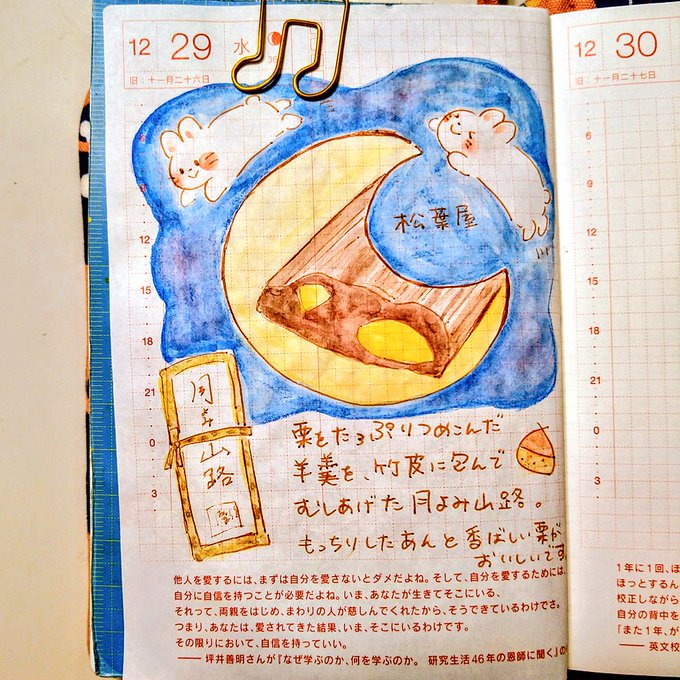 12 29 水
旧:十一月二十六日
松葉屋
月よみ山路
栗をたっぷりつめこんだ
羊羹を、竹皮に包んで
むしあげた月よみ山路。
もっちりしたあんと香ばしい栗が
おいしいです
12
15
18
21
0
3
他人を愛するには、まずは自分を愛さないとダメだよね。そして、自分を愛するためには、
自分に自信を持つことが必要だよね。いま、あなたが生きてそこにいる、
それって、両親をはじめ、まわりの人が慈しんでくれたから、そうできているわけでさ。
つまり、あなたは、愛されてきた結果、いま、そこにいるわけです。
その限りにおいて、自信を持っていい。
── 坪井善明さんが『なぜ学ぶのか、何を学ぶのか。 研究生活46年の恩師に聞く』の
12 30
旧:十一月二十七日
6
9
12
15
18
21
0
3
1年に1回、ほ
ほっとするん
校正しながら
自分の背中を
「また1年、が
── 英文校